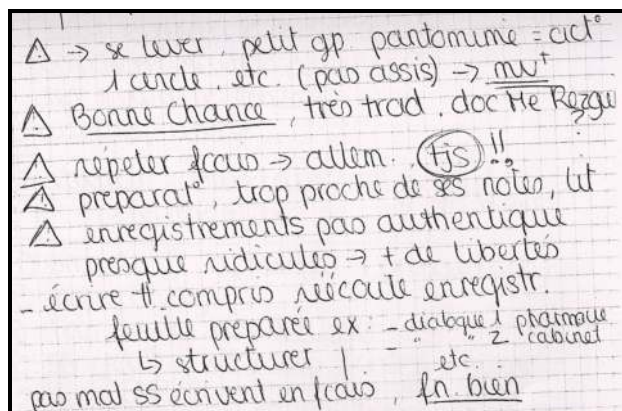 ⚠ → se lever, petit gp. pantomime = act°
1 cercle, etc. (pas assis) → mvt
⚠ Bonne Chance, très trad. doc Me
⚠ répeter fcais → allem. tjs !!
⚠ preparat°, trop proche de ses notes, lit
⚠ enregistrements pas authentique
presque ridicules → + de libertés
- écrire # compris réécoute enregistr.
feuille préparée ex: - dialogue 1 pharmacie
- " 2 cabinet
↳ structurer ! etc.
pas mal SS écrivent en fcais, fn. bien